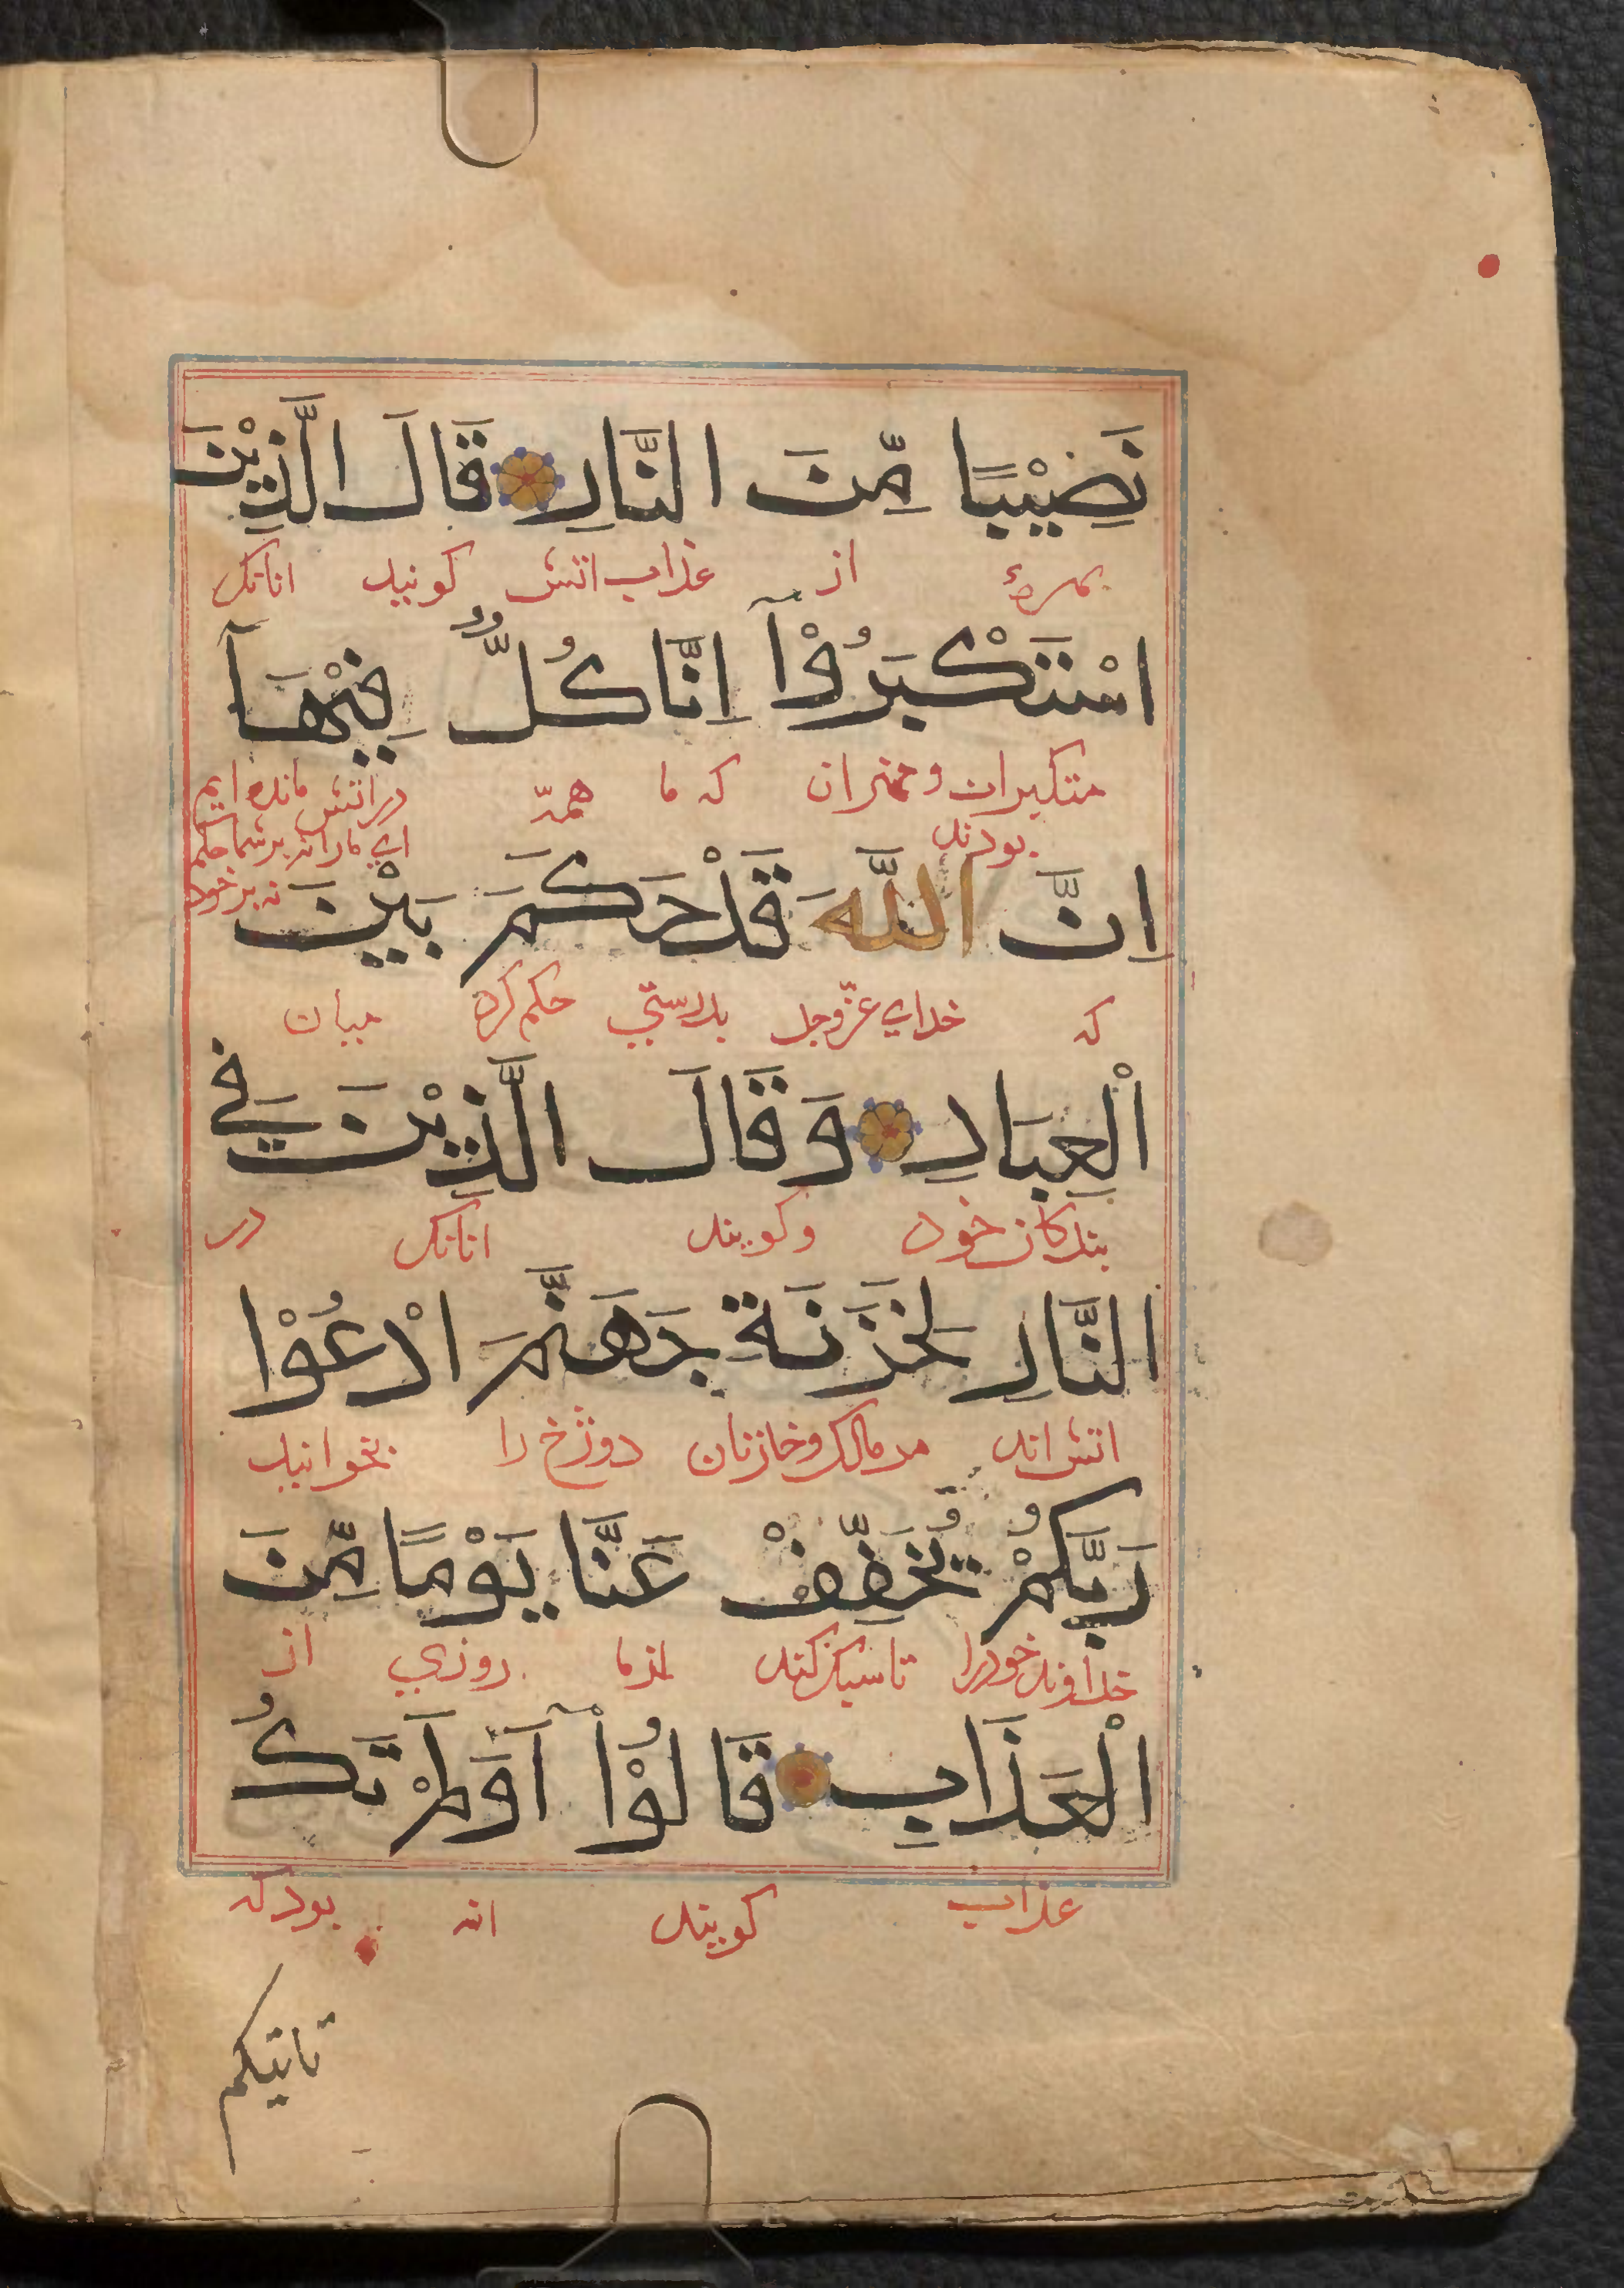 نَصِيْبًا مِّنَ النَّارِ قَالَ الَّذِيْنَ
بهرهٔ از عذاب اتش کونید انانک
اسْتَكْبَرُوْآ اِنَّا كُلٌّ فِيْهَآ
متکبران و مهتران که ما همه در اتش مانده ایم
بودند ای ما را نه بر شما حکم
نه بر خود
اِنَّ اللّٰهَ قَدْ حَكَمَ بَيْنَ
که خدای عزّوجل بدرستی حکم کرد میان
الْعِبَادِ وَقَالَ الَّذِيْنَ فِي
بندکان خود وکویند انانک در
النَّارِ لِخَزَنَةِ جَهَنَّمَ ادْعُوْا
اتش اند مر مالک و خازنان دوزخ را بخوانید
رَبَّكُمْ يُخَفِّفْ عَنَّا يَوْمًا مِّنَ
خداوند خود را تا سبک کند از ما روزی از
الْعَذَابِ قَالُوْآ اَوَلَمْ تَكُ
عذاب کویند انه بود که
تاتیکم